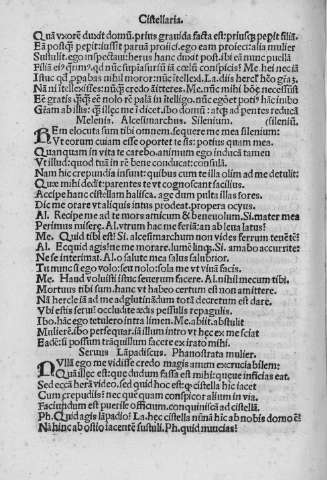 Cistellaria.
Quā vxorē duxit domū. prius grauida facta est: priusq̃ pepit filiā.
Eā postq̃ pepit: iussit paruā proiici. ego eam proieci: alia mulier
Sustulit. ego inspectaui: herus hanc duxit post. ibi eā nunc puellā
Filiā
Istuc qd̃ nihil moror: nūc itellexi. La. dii
Nā ni itellexisses: nūq̃ credo āitteres. Me. nūc mihi
Eē gratis

Melenis. Alcesimarchus. Silenium. (silenium.
REm elocuta sum tibi omnem. sequere me mea silenium:
Vt eorum cuiam esse oportet te sis: potius quam mea.
Quanquam in vita te carebo. animum ego inducā tamen
Vt illud: quod tuā in rē bene conducat: consulā.
Nam hic crepundia insunt: quibus cum te illa olim ad me detulit:
Quæ mihi dedit: parentes te vt cognoscant facilius.
Accipe hanc cistellam halisca. age dum pulta illas fores.
Dic me orare vt aliquis intus prodeat. propera ocyus.
Al. Recipe me ad te mors amicum & beneuolum. Si. mater mea
Perimus miseræ. Al. vtrum hac me feriā: an ab leua latus?
Me. Quid tibi est? Si. alcesimarchum non vides ferrum tenētē?
Al. Ecquid agis? ne me morare. lumē linq̃. Si. amabo accurrite:
Ne se interimat. Al. o salute mea salus salubrior.
Tu nunc si ego volo: seu nolo: sola me vt viuā facis.
Me. Haud voluisti istuc seuerum facere. Al. nihil mecum tibi.
Mortuus tibi sum. hanc vt habeo certum est non amittere.
Nā hercle iā ad me adglutinādum totā decretum est dare.
Vbi estis serui? occludite ædis pessulis repagulis.
Ibo. hāc ego tetulero intra limen. Me. abiit. abstulit
Mulierē. ibo persequar. iā illum intro vt hęc ex me sciat
Eadē: si possum tranquillum facere ex irato mihi.
Seruus Lāpadiscus. Phanostrata mulier.
NVllā ego me vidisse credo magis anum excrucia bilem:
Quā illęc est: que dudum fassa est mihi: quęque inficias eat.
Sed eccā herā video. sed quid hoc est: q̃ cistella hic iacet
Cum crepudiis? nec quē quam conspicor alium in via.
Faciundum est puerile officium. conquiniscā ad cistellā.
Ph. Quid agis lāpadio? La. hęc cistella nūnā hic ab nobis domo ē?
Nā hinc ab ostio iacentē sustuli. Ph. quid nuncias?